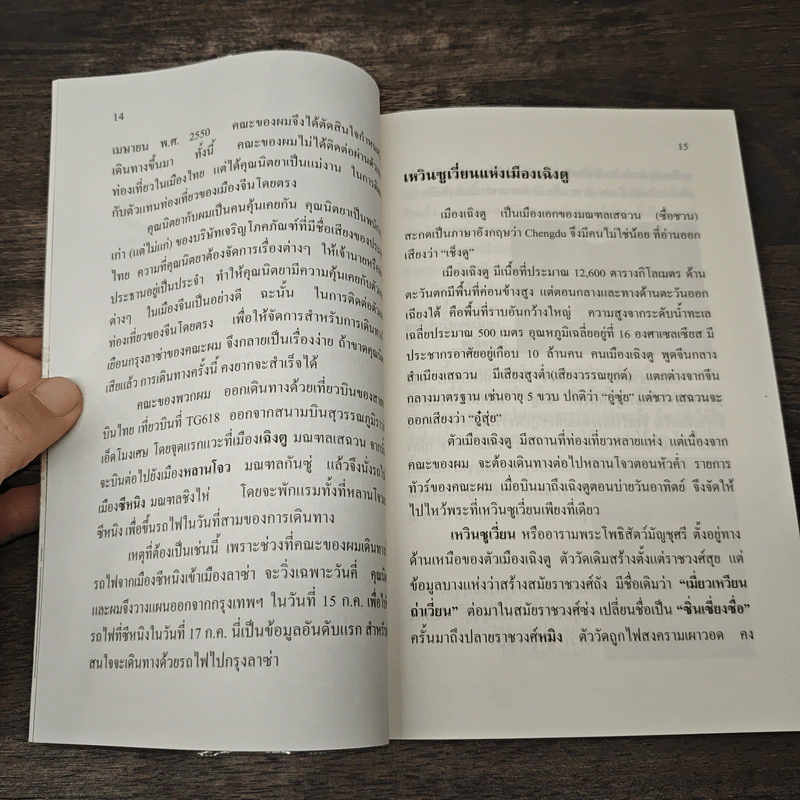 14
เมษายน พ.ศ. 2550 คณะของผมจึงได้ตัดสินใจกำหนด
เดินทางขึ้นมา ทั้งนี้ คณะของผมไม่ได้ติดต่อผ่านตัวแทน
ท่องเที่ยวในเมืองไทย แต่ได้คุณนิตยาเป็นแม่งาน ในการติดต่อ
กับตัวแทนท่องเที่ยวของเมืองจีนโดยตรง
คุณนิตยากับผมเป็นคนคุ้นเคยกัน คุณนิตยาเป็น
เก่า (แต่ไม่แก่) ของบริษัทเจริญโภคภัณฑ์ที่มีชื่อเสียงของประเทศ
ไทย ความที่คุณนิตยาต้องจัดการเรื่องต่างๆ ให้เจ้านายหรือท่าน
ประธานอยู่เป็นประจำ ทำให้คุณนิตยามีความคุ้นเคยกับตัวแทน
ต่างๆ ในเมืองจีนเป็นอย่างดี ฉะนั้น ในการติดต่อตัวแทน
ท่องเที่ยวของจีนโดยตรง เพื่อให้จัดการสำหรับการเดินทาง
เยือนกรุงลาซ่าของคณะผม จึงกลายเป็นเรื่องง่าย ถ้าขาดคุณนิตยา
เสียแล้ว การเดินทางครั้งนี้ คงยากจะสำเร็จได้
คณะของพวกผม ออกเดินทางด้วยเที่ยวบินของสายการ
บินไทย เที่ยวบินที่ TG618 ออกจากสนามบินสุวรรณภูมิ
เอ็ดโมงเศษ โดยจุดแรกแวะที่เมืองเฉิงตู มณฑลเสฉวน จากนั้น
จะบินต่อไปยังเมืองหลานโจว มณฑลกันซู่ แล้วจึงนั่งรถไป
เมืองซีหนิง มณฑลชิงไห่ โดยจะพักแรมทั้งที่หลานโจว
ซีหนิง เพื่อขึ้นรถไฟในวันที่สามของการเดินทาง
เหตุที่ต้องเป็นเช่นนี้ เพราะช่วงที่คณะของผมเดินทาง
รถไฟจากเมืองซีหนิงเข้าเมืองลาซ่า จะวิ่งเฉพาะวันคี่ คุณนิตยา
และผมจึงวางแผนออกจากกรุงเทพฯ ในวันที่ 15 ก.ค. เพื่อให้
รถไฟที่ซีหนิงในวันที่ 17 ก.ค. นี่เป็นข้อมูลอันดับแรก สำหรับ
สนใจจะเดินทางด้วยรถไฟไปกรุงลาซ่า
15
เหวินซูเวี่ยนแห่งเมืองเฉิงตู
เมืองเฉิงตู เป็นเมืองเอกของมณฑลเสฉวน (ซื่อชวน)
สะกดเป็นภาษาอังกฤษว่า Chengdu จึงมีคนไม่ใช่น้อย ที่อ่านออก
เสียงว่า “เช็งดู”
เมืองเฉิงตู มีเนื้อที่ประมาณ 12,600 ตารางกิโลเมตร ด้าน
ตะวันตกมีพื้นที่ค่อนข้างสูง แต่ตอนกลางและทางด้านตะวันออก
เฉียงใต้ คือพื้นที่ราบอันกว้างใหญ่ ความสูงจากระดับน้ำทะเล
เฉลี่ยประมาณ 500 เมตร อุณหภูมิเฉลี่ยอยู่ที่ 16 องศาเซลเซียส มี
ประชากรอาศัยอยู่เกือบ 10 ล้านคน คนเมืองเฉิงตู พูดจีนกลาง
สำเนียงเสฉวน มีเสียงสูงต่ำ(เสียงวรรณยุกต์) แตกต่างจากจีน
กลางมาตรฐาน เช่นอายุ 5 ขวบ ปกติว่า “อู่ซุ่ย” แต่ชาว เสฉวนจะ
ออกเสียงว่า “อู้สุ่ย”
ตัวเมืองเฉิงตู มีสถานที่ท่องเที่ยวหลายแห่ง แต่เนื่องจาก
คณะของผม จะต้องเดินทางต่อไปหลานโจวตอนหัวค่ำ รายการ
ทัวร์ของคณะผม เมื่อบินมาถึงเฉิงตูตอนบ่ายวันอาทิตย์ จึงจัดให้
ไปไหว้พระที่เหวินซูเวี่ยนเพียงที่เดียว
เหวินซูเวี่ยน หรืออารามพระโพธิสัตว์มัญชุศรี ตั้งอยู่ทาง
ด้านเหนือของตัวเมืองเฉิงตู ตัววัดเดิมสร้างตั้งแต่ราชวงศ์สุย แต่
ข้อมูลบางแห่งว่าสร้างสมัยราชวงศ์ถัง มีชื่อเดิมว่า “เมี่ยวเหวียน
ถ่าเวี่ยน” ต่อมาในสมัยราชวงศ์ซ่ง เปลี่ยนชื่อเป็น “ซิ่นเซี่ยงซื่อ”
ครั้นมาถึงปลายราชวงศ์หมิง ตัววัดถูกไฟสงครามเผาวอด คง